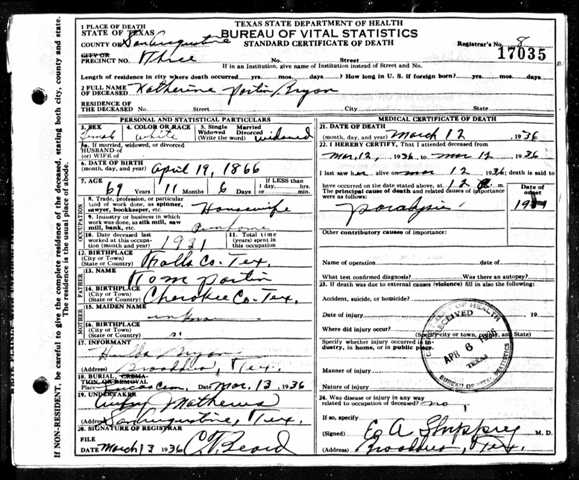 TEXAS STATE DEPARTMENT OF HEALTH
BUREAU OF VITAL STATISTICS
STANDARD CERTIFICATE OF DEATH
1 PLACE OF DEATH
STATE OF TEXAS
COUNTY OF San Augustine
Registrar's No. 8
17035
CITY OR
PRECINCT NO. Three No. Street
If in an Institution, give name of Institution instead of Street and No.
Length of residence in city where death occurred yrs. months days. How long in U. S. if foreign born? yrs. months days
2 FULL NAME OF DECEASED Katherine Bryan
RESIDENCE OF THE DECEASED No. Street City State
PERSONAL AND STATISTICAL PARTICULARS
3. SEX 4. COLOR OR RACE White 5. Single Married Widowed Divorced (Write the word) widowed
5a. If married, widowed, or divorced
HUSBAND of
(or) WIFE of
6. DATE OF BIRTH
(month, day, and year) April 19, 1866
7. AGE 69 Years 11 Months 6 Days If LESS than 1 day hrs. or min.
OCCUPATION
8. Trade, profession, or particular kind of work done, as spinner, sawyer, bookkeeper, etc. Housewife
9. Industry or business in which work was done, as silk mill, saw mill, bank, etc.
10. Date deceased last worked at this occupation (month and year) 1931
11. Total time (years) spent in this occupation
12. BIRTHPLACE
(City or Town)
(State or Country) Falls Co. Tex.
FATHER
13. NAME Tom
14. BIRTHPLACE
(City or Town)
(State or Country) Cherokee Co. Tex.
MOTHER
15. MAIDEN NAME
16. BIRTHPLACE
(City or Town)
(State or Country)
17. INFORMANT
(Address) Tex.
18. BURIAL, CREMATION, OR REMOVAL
Date Mar. 13 1936
19. UNDERTAKER Mathews
(Address) San Augustine, Tex.
20. SIGNATURE OF REGISTRAR
FILE DATE March 13 1936
MEDICAL CERTIFICATE OF DEATH
21. DATE OF DEATH
(month, day, and year) March 12, 1936
22. I HEREBY CERTIFY, That I attended deceased from
Mar. 12, 1936 to Mar 12 1936
I last saw her alive on Mar 12 1936; death is said to
have occurred on the date stated above, at 12 m.
The principal cause of death and related causes of importance were as follows:
Date of onset
Paralysis
Other contributory causes of importance:
Name of operation Date of
What test confirmed diagnosis? Was there an autopsy?
23. If death was due to external causes (violence) fill in also the following:
Accident, suicide, or homicide?
Date of injury 19
Where did injury occur?
(Specify city or town, county, and State)
Specify whether injury occurred in industry, in home, or in public place.
Manner of injury
Nature of injury
24. Was disease or injury in any way related to occupation of deceased? no
If so, specify
(Signed) E. A. M. D.
(Address) Tex.
RECEIVED
APR 6 1936
TEXAS
BUREAU OF VITAL STATISTICS
If NON-RESIDENT, be careful to give the complete residence of the deceased, stating both city, county and state.
The residence is the usual place of abode.